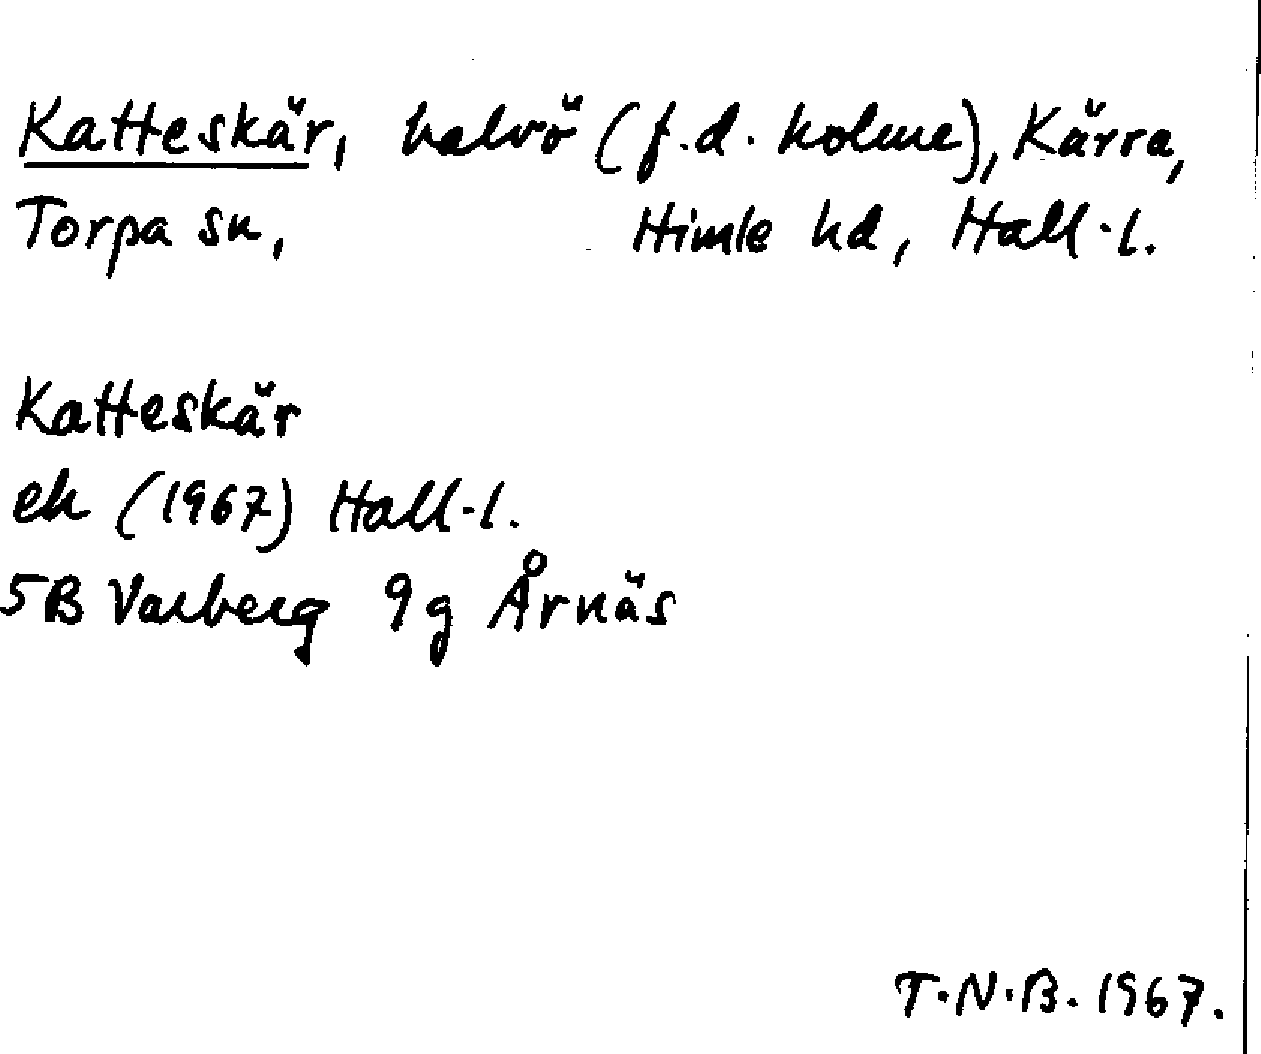 Katteskär, halvö (f.d. holme), Kärra,
Torpa sn, Himle hd, Hall.l.
Katteskär
ek (1967) Hall.l.
5B Varberg 9g Årnäs
T.N.B. 1967.